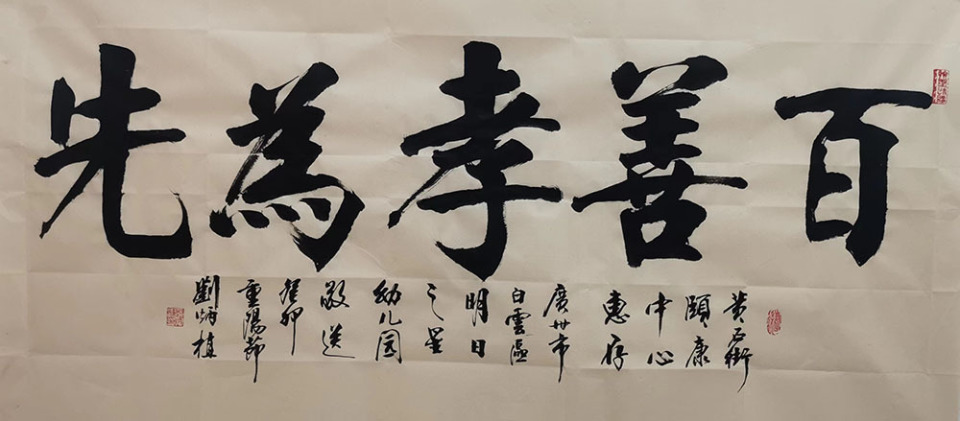 百善孝為先
黄石街
頤康
中心
惠存
廣州市
白雲區
明日
之星
幼儿园
敬送
癸卯
重陽節
劉炳植